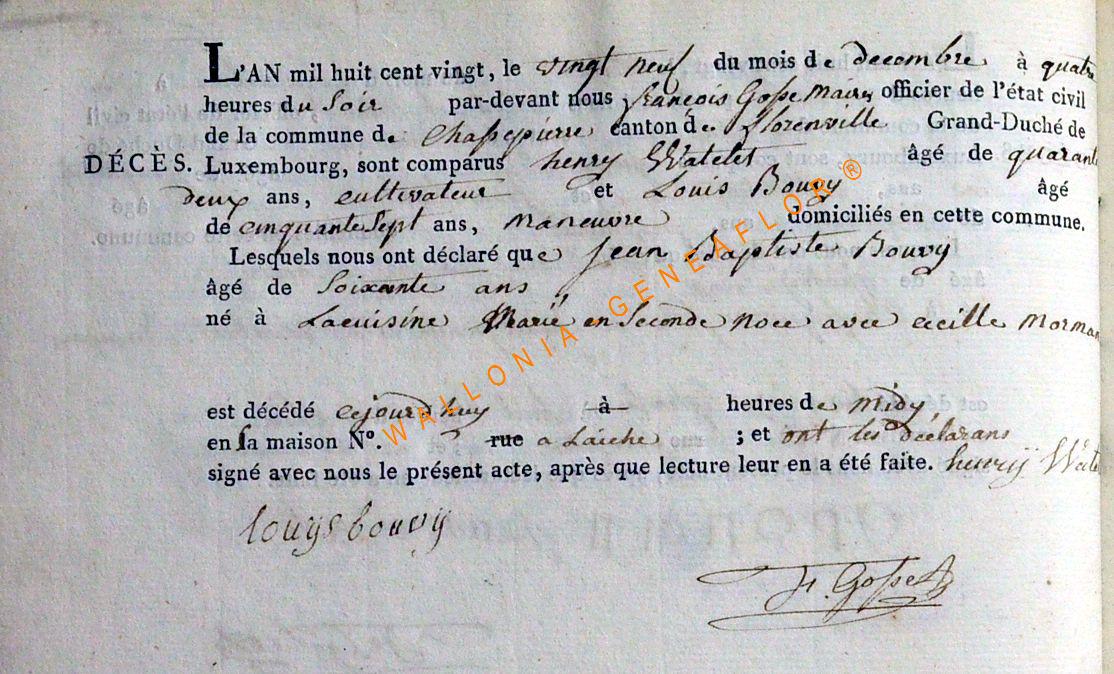 L'AN mil huit cent vingt, le vingt neuf du mois de decembre à quatre
heures du Soir par-devant nous françois Gosse Maire officier de l'état civil
de la commune de Chassepierre canton de florenville Grand-Duché de
DÉCÈS. Luxembourg, sont comparus henry Watelet âgé de quarante
deux ans, cultivateur et Louis Bouvy âgé
de cinquante Sept ans, maneuvre domiciliés en cette commune.
Lesquels nous ont déclaré que jean Baptiste Bouvy
âgé de Soixante ans
né à Lacuisine Marié en Seconde noce avec cecille Morman
est décédé cejourd'huy à heures de midy,
en Sa maison No. rue a Laiche ; et ont les déclarans
signé avec nous le présent acte, après que lecture leur en a été faite. henrÿ Wate
louÿs bouvÿ
F. Gosse
WALLONIA GENEAFLOR ®